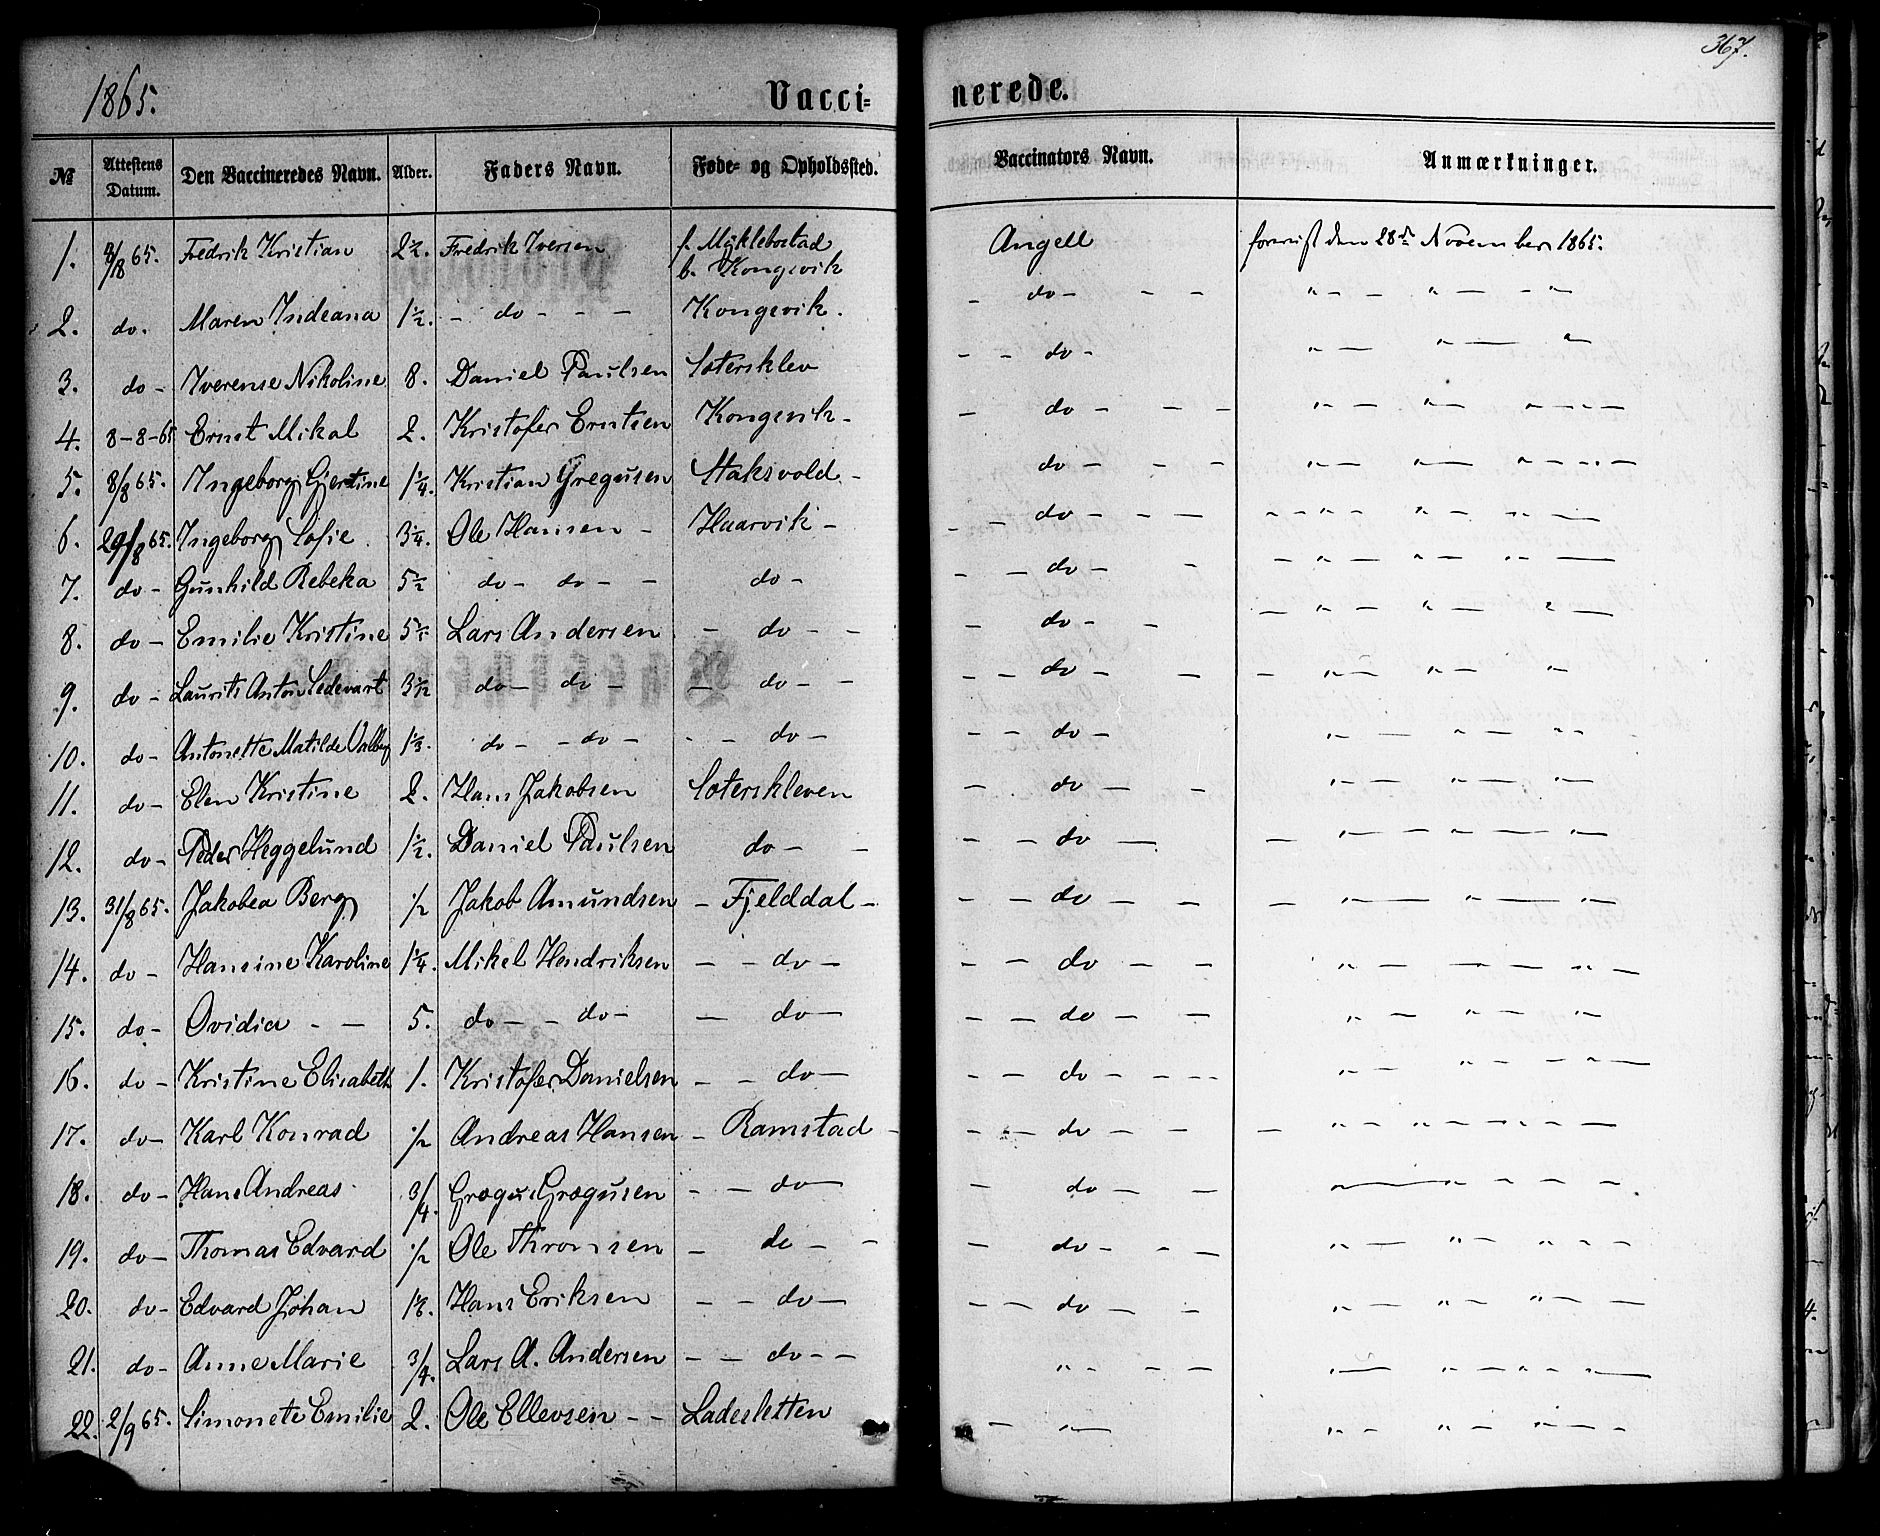 367.
1865. Vacci= nerede.
№ Attestens Datum. Den Vaccineredes Navn. Alder. Faders Navn. Føde- og Opholdssted. Vaccinators Navn. Anmærkninger.
1. 8/8 65. Fredrik Kristian 2½. Fredrik Iversen f. Myklebostad b. Kongsvik Angell forevist den 28de November 1865.
2. do. Maren Indeana 1½. - do - - - Kongsvik. - do - - - " - - " - - "
3. do - Iverense Nikoline 8. Daniel Paulsen Sætersklev - - do -
4. 8-8-65 Ernst Mikal 2. Kristofer Erntsen Kongsvik - - do - - -
5. 8/8 65. Ingeborg Gjertine 1¼. Kristian Gregusen Staksvold - do - - -
6. 29/8 65. Ingeborg Sofie 3¼. Ole Hansen - Haarvik - - - do - - -
7. do - Gunhild Rebeka 5½ do - do - - do - - - do - -
8. do - Emilie Kristine 5½ Lars Andersen - do - - - do - -
9. do - Laurits Anton Sedevart do - do - - do - - - - do - -
10. do - Antonette Matilde Valborg 1⅓. do - - do - - - do - - - do -
11. do - Elen Kristine 2. Hans Jakobsen Sæterskleven - do - -
12. do - Peder Heggelund 1½. Daniel Paulsen do - - - - do -
13. 31/8 65. Jakobea Berg ½ Jakob Amundsen - Fjelddal - - - do - -
14. do - Hansine Karoline 1¼. Mikel Hendriksen - - do - - - do - -
15. do - Ovidia - - 5. do - - do - - do - - - do - -
16. do - Kristine Elisabeth 1. Kristofer Danielsen - - do - - - do - - - -
17. do - Karl Konrad ½ Andreas Hansen - Ramstad - - - do - -
18. do - Hans Andreas 3/4. Grægus Grægusen - - do - - do - -
19. do - Thomas Edvard ½ Ole Thromsen - do - - - do - - -
20. do - Edvard Johan Hans Eriksen - - do - - - do - -
21. do - Anne Marie 3/4. Lars A. Andersen - - do - - " - - -
22. 2/9 65. Simonete Emilie 2. Ole Ellevsen - - Ladesletten - "